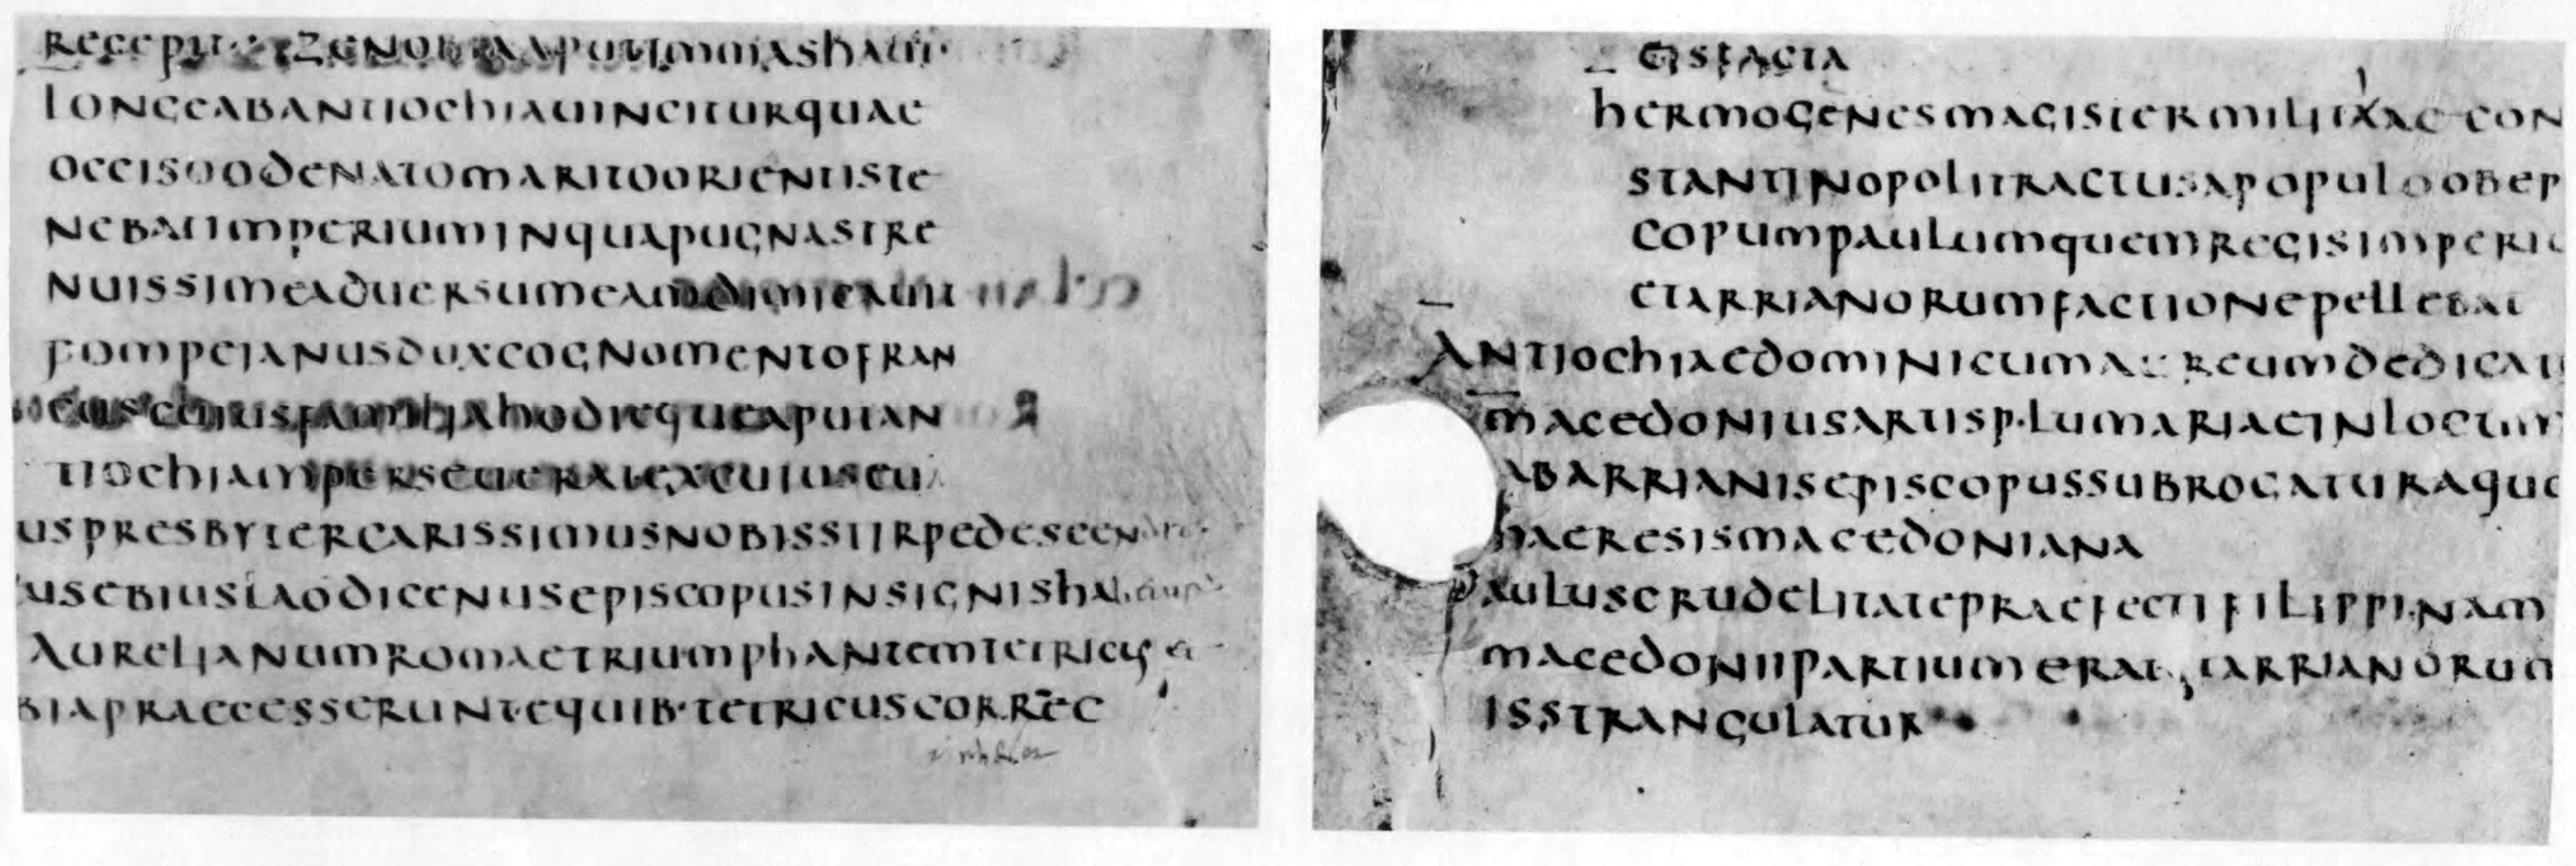 RECEPIT ZENOBIA APUT IMMAS HAUT
LONGE AB ANTIOCHIA UINCITUR QUAE
OCCISO ODENATO MARITO ORIENTIS TE
NEBAT IMPERIUM IN QUA PUGNA STRE
NUISSIME ADUERSUM EAM DIMICAUIT
POMPEIANUS DUX COGNOMENTO FRAN
CUS CUIUS FAMILIA HODIEQUE APUT AN
TIOCHIAM PERSEUERAT EX CUIUS EU
US PRESBYTER CARISSIMUS NOBIS STIRPE DESCEN
USEBIUS LAODICENUS EPISCOPUS INSIGNIS HA
AURELIANUM ROMAE TRIUMPHANTEM TETRICUS ET
BIA PRAECESSERUNT E QUIB· TETRICUS CORREC
GIS FACTA
HERMOGENES MAGISTER MILITIAE CON
STANTINOPOLI TRACTUS A POPULO OB EP
COPUM PAULUM QUEM REGIS IMPERIO
ET ARRIANORUM FACTIONE PELLEBAT
ANTIOCHIAE DOMINICUM AUREUM DEDICAT
MACEDONIUS ARTIS PLUMARIAE IN LOCUM
AB ARRIANIS EPISCOPUS SUBROGATUR A QUO
HAERESIS MACEDONIANA
PAULUS CRUDELITATE PRAEFECTI FILIPPI NAM
MACEDONII PARTIUM ERAT ET ARRIANORUM
IS STRANGULATUR